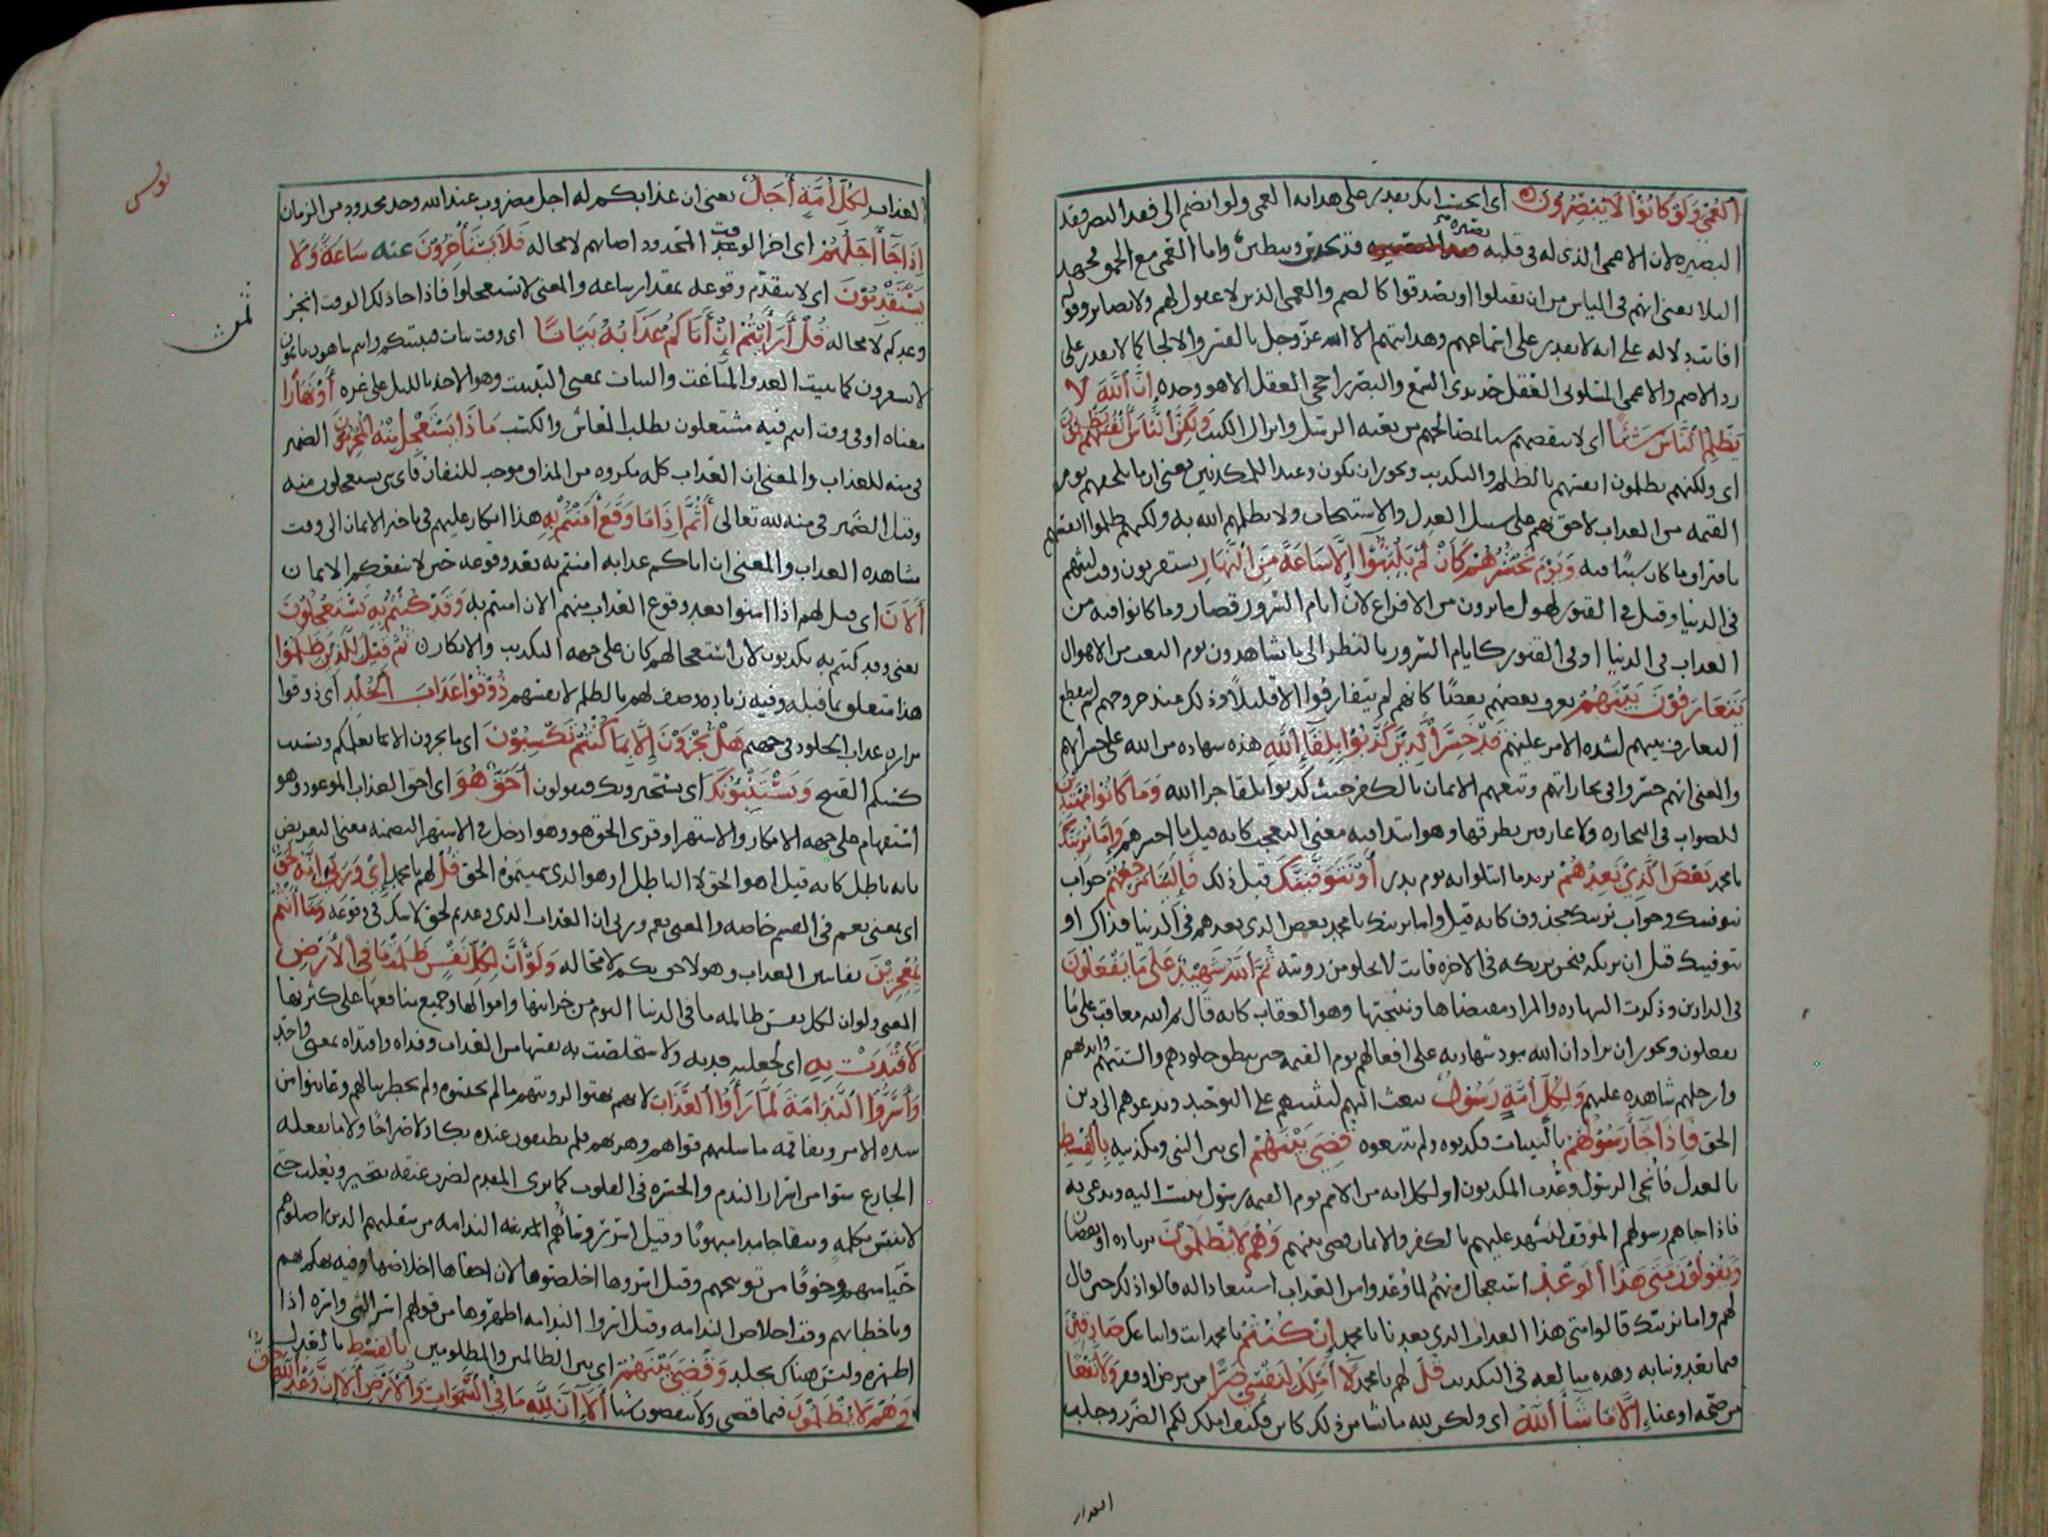 العُمْيَ وَلَوْ كَانُوا لَا يُبْصِرُونَ اى اتحسب انك تقدر على هدايه العمى ولو انضم الى فقد البصر فقد
البصيره لان الاعمى الذى له فى قلبه بصيرة قد يحدس ويتظنن واما العمى مع الحمق فجهد
البلا يعنى انهم فى الياس من ان يقبلوا او يصدقوا كالصم والعمى الذين لا عقول لهم ولا بصاير وقوله
افانت دلاله على انه لا يقدر على اسماعهم وهدايتهم الا الله عز وجل بالقسر والالجا كما لا يقدر على
رد الاصم والاعمى المسلوبى العقل حديدى السمع والبصر راجحى العقل الا هو وحده إِنَّ اللَّهَ لَا
يَظْلِمُ النَّاسَ شَيْئًا اى لا ينقصهم شيا مصالحهم من بعثه الرسل وانزال الكتب وَلَكِنَّ النَّاسَ أَنْفُسَهُمْ يَظْلِمُونَ
اى ولكنهم يظلمون انفسهم بالظلم والتكذيب ويجوز ان يكون وعيدا للمكذبين يعنى ان ما يلحقهم يوم
القيمه من العذاب لاحق بهم على سبيل العدل والاستيجاب ولا يظلمهم الله به ولكنهم ظلموا انفسهم
باقتراف ما كان سببًا فيه وَيَوْمَ نَحْشُرُهُمْ كَأَنْ لَمْ يَلْبَثُوا إِلَّا سَاعَةً مِنَ النَّهَارِ يستقربون وقت لبثهم
فى الدنيا وقيل فى القبور لهول ما يرون من الافزاع لان ايام السرور قصار وما كانوا فيه من
العذاب فى الدنيا او فى القبور كايام السرور بالنظر الى ما يشاهدون يوم البعث من الاهوال
يَتَعَارَفُونَ بَيْنَهُمْ يعرف بعضهم بعضًا كانهم لم يتفارقوا الا قليلًا وذلك عند خروجهم ثم ينقطع
التعارف بينهم لشده الامر عليهم قَدْ خَسِرَ الَّذِينَ كَذَّبُوا بِلِقَاءِ اللَّهِ هذه شهاده من الله على خسرانهم
والمعنى انهم خسروا فى تجاراتهم وبيعهم الايمان بالكفر حيث كذبوا بلقا جزا الله وَمَا كَانُوا مُهْتَدِينَ
للصواب فى التجاره ولا عارفين بطرقها وهو ابتدا فيه معنى التعجب كانه قيل ما اخسرهم وَإِمَّا نُرِيَنَّكَ
يا محمد بَعْضَ الَّذِي نَعِدُهُمْ يريد ما ابتلوا به يوم بدر أَوْ نَتَوَفَّيَنَّكَ قبل ذلك فَإِلَيْنَا مَرْجِعُهُمْ جواب
نتوفينك وجواب نرينك محذوف كانه قيل واما نرينك يا محمد بعض الذى نعدهم فى الدنيا فذاك او
نتوفينك قبل ان نريكه فنحن نريكه فى الاخره فانت لا تخلو من رويته ثُمَّ اللَّهُ شَهِيدٌ عَلَى مَا يَفْعَلُونَ
فى الدارين وذكرت الشهاده والمراد مقتضاها ونتيجتها وهو العقاب كانه قال ثم الله معاقب على ما
يفعلون ويجوز ان يراد ان الله مود شهادته على افعالهم يوم القيمه حين ينطق جلودهم والسنتهم وايديهم
وارجلهم شاهده عليهم وَلِكُلِّ أُمَّةٍ رَسُولٌ يبعث اليهم لينبههم على التوحيد ويدعوهم الى دين
الحق فَإِذَا جَاءَ رَسُولُهُمْ بالبينات فكذبوه ولم يتبعوه قُضِيَ بَيْنَهُمْ اى بين النبى ومكذبيه بِالْقِسْطِ
بالعدل فانجى الرسول وعذب المكذبون او لكل امه من الامم يوم القيمه رسول ينسب اليه ويدعى به
فاذا جاهم رسولهم الموقف ليشهد عليهم بالكفر والايمان قضى بينهم وَهُمْ لَا يُظْلَمُونَ بزياده او نقصان
وَيَقُولُونَ مَتَى هَذَا الْوَعْدُ استعجال منهم لما وعدوا من العذاب استبعادا له قالوا ذلك حين قال
لهم واما نرينك قالوا متى هذا العذاب الذى يعدنا يا محمد إِنْ كُنْتُمْ يا محمد انت واتباعك صَادِقِينَ
فيما تعدوننا به وهذه مبالغه فى التكذيب قُلْ لهم يا محمد لَا أَمْلِكُ لِنَفْسِي ضَرًّا من مرض او فقر وَلَا نَفْعًا
من صحه او غناء إِلَّا مَا شَاءَ اللَّهُ اى ولكن لله ما شا من ذلك كاين فكيف املك لكم الضرر وجلب
العذاب
يونس
ثمن
العذاب لِكُلِّ أُمَّةٍ أَجَلٌ يعنى ان عذابكم له اجل مضروب عند الله وحد محدود من الزمان
إِذَا جَاءَ أَجَلُهُمْ اى اخر الوقت المحدود اصابهم لا محاله فَلَا يَسْتَأْخِرُونَ عنه سَاعَةً وَلَا
يَسْتَقْدِمُونَ اى لا يتقدم وقوعه بمقدار ساعه والمعنى لا تستعجلوا فاذا حا ذلك الوقت انجز
وعدكم لا محاله قُلْ أَرَأَيْتُمْ إِنْ أَتَاكُمْ عَذَابُهُ بَيَاتًا اى وقت بيات فبيتكم وانتم ساهون نائمون
لا تشعرون كما يبيت العدو المباغت والبيات بمعنى التبييت وهو الاخذ بالليل على غره أَوْ نَهَارًا
معناه او فى وقت انتم فيه مشتغلون بطلب المعاش والكسب مَاذَا يَسْتَعْجِلُ مِنْهُ الْمُجْرِمُونَ الضمير
فى منه للعذاب والمعنى ان العذاب كله مكروه مر المذاق موجب للنفار فاى شى يستعجلون منه
وقيل الضمير فى منه لله تعالى أَثُمَّ إِذَا مَا وَقَعَ آمَنْتُمْ بِهِ هذا انكار عليهم فى تاخير الايمان الى وقت
مشاهده العذاب والمعنى ان اتاكم عذابه امنتم به بعد وقوعه حين لا ينفعكم الايمان
آلْآنَ اى قيل لهم اذا امنوا بعد وقوع العذاب منهم الان امنتم به وَقَدْ كُنْتُمْ بِهِ تَسْتَعْجِلُونَ
يعنى وقد كنتم به تكذبون لان استعجالهم كان على جهه التكذيب والانكار ثُمَّ قِيلَ لِلَّذِينَ ظَلَمُوا
هذا متعلق بما قبله وفيه زياده وصف لهم بالظلم لانفسهم ذُوقُوا عَذَابَ الْخُلْدِ اى ذوقوا
مراره عذاب الخلود فى جهنم هَلْ تُجْزَوْنَ إِلَّا بِمَا كُنْتُمْ تَكْسِبُونَ اى ما تجزون الا بما تعملكم وبسبب
كسبكم القبيح وَيَسْتَنْبِئُونَكَ اى يستخبرونك فيقولون أَحَقٌّ هُوَ اى احق العذاب الموعود وهو
استفهام على جهه الانكار والاستهزا وقرى الحق هو وهو ادخل فى الاستهزا لتضمنه معنى التعريض
بانه باطل كانه قيل اهو الحق لا الباطل او هو الذى سميتموه الحق قُلْ لهم يا محمد إِي وَرَبِّي إِنَّهُ لَحَقٌّ
اى بمعنى نعم فى القسم خاصه والمعنى نعم وربى ان العذاب الذى وعدتم لحق لا شك فى وقوعه وَمَا أَنْتُمْ
بِمُعْجِزِينَ بفايتين العذاب وهو لاحق بكم لا محاله وَلَوْ أَنَّ لِكُلِّ نَفْسٍ ظَلَمَتْ مَا فِي الْأَرْضِ
المعنى ولو ان لكل نفس ظالمه ما فى الدنيا اليوم من خزاينها واموالها وجميع منافعها على كثرتها
لَافْتَدَتْ بِهِ اى لجعلته فديه ولاستخلصت به نفسها من العذاب وفداه وافتداه بمعنى واحد
وَأَسَرُّوا النَّدَامَةَ لَمَّا رَأَوُا الْعَذَابَ لانهم بهتوا لرويتهم ما لم يحتسبوه ولم يخطر ببالهم وعاينوا من
شده الامر وتفاقمه ما سلبهم قواهم وبهرهم فلم يطيقوا عنده بكاء ولا صراخًا ولا ما يفعله
الجازع سوا من اسرار الندم والحسره فى القلوب كما يرى المقدم لضرب عنقه يتحير ويغلب حتى
لا ينبس بكلمه ويبقا جامدا مبهوتًا وقيل اسر روساهم الندامه من سفلتهم الذين اضلوهم
حياء منهم وخوفًا من توبيخهم وقيل اسروها اخلصوها لان اخفاها اخلاصها وفيه تهكم بهم
وباخطايهم وقت اخلاص الندامه وقيل اسروا الندامه اظهروها من قولهم اسر الشى واسره اذا
اظهره وليس هناك تجلد وَقُضِيَ بَيْنَهُمْ اى بين الظالمين والمظلومين بِالْقِسْطِ بالعدل
وَهُمْ لَا يُظْلَمُونَ فيما قضى ولا ينقصون شيا أَلَا إِنَّ لِلَّهِ مَا فِي السَّمَوَاتِ وَالْأَرْضِ أَلَا إِنَّ وَعْدَ اللَّهِ حَقٌّ